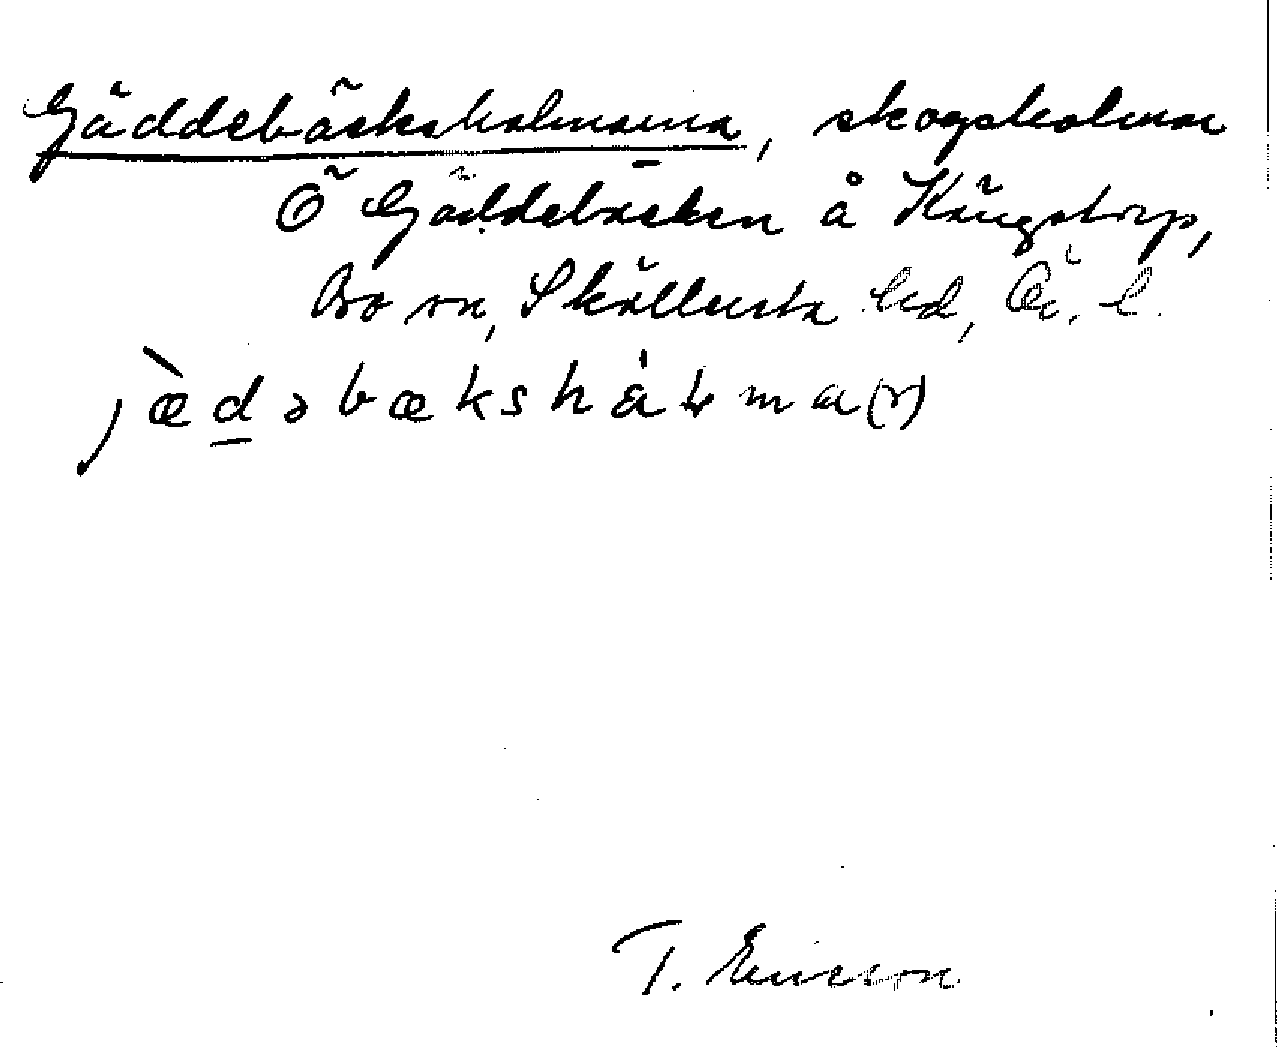 Gäddebäcksholmarna, skogsholmar
Ö Gäddebäcken å Kängstorp,
Bo sn, Sköllersta hd, Ör. l.
jæ̀dəbækshåɫma(r)
T. Ericson